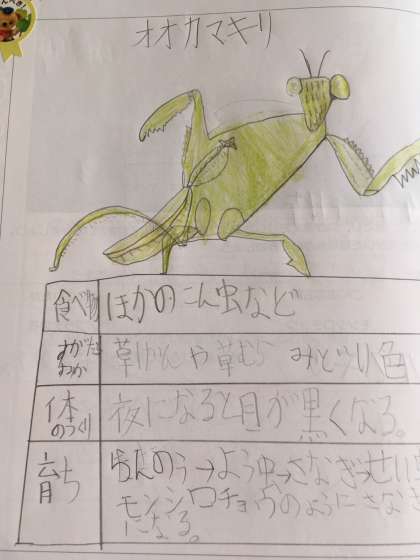 オオカマキリ
食べ物 ほかのこん虫など
すがた
草げんや草むら みどりい色
体のつくり 夜になると目が黒くなる。
育ち らんのう→よう虫→さなぎ→せい
モンシロチョウのようにさなぎ
になる。